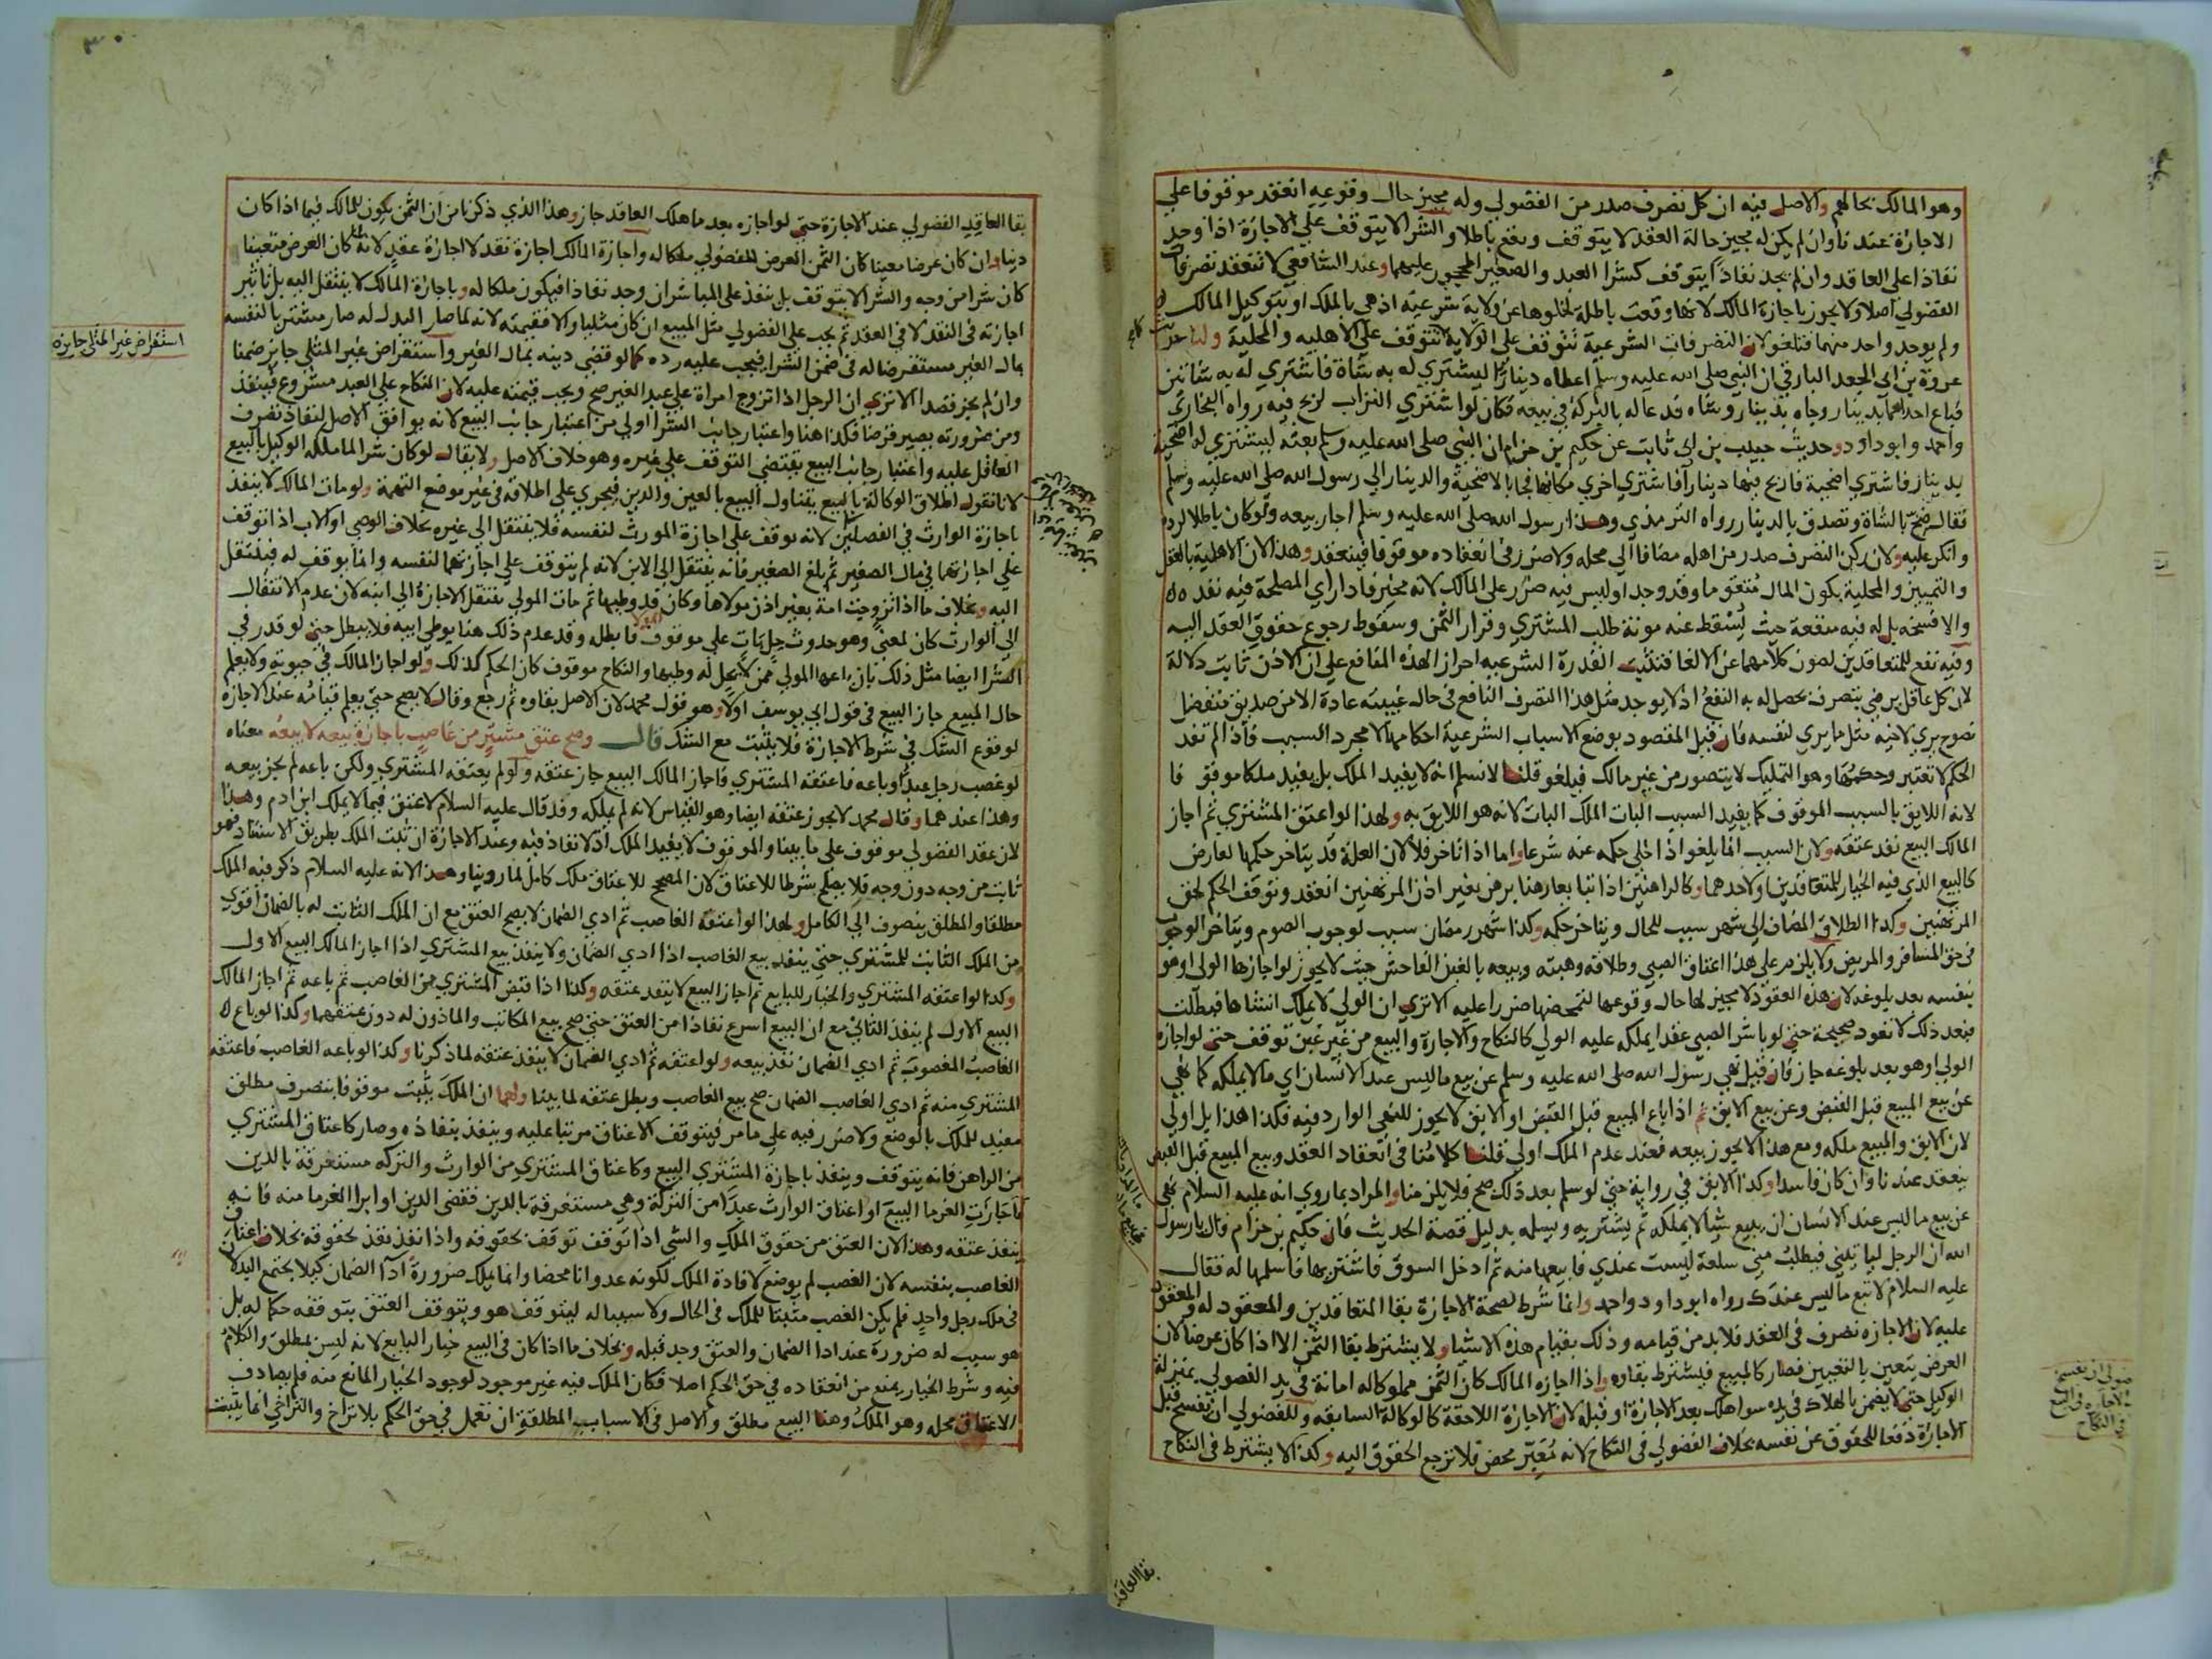 وهو المالك بحالهم والاصل فيه ان كل تصرف صدر من الفضولي وله مجيز حال وقوعه انعقد موقوفا علي
الاجازة عندنا وان لم يكن له مجيز حالة العقد لا يتوقف ويقع باطلا والشرا لا يتوقف علي الاجازة اذا وجد
نفاذا علي العاقد وان لم يجد نفاذا يتوقف كشرا العبد والصغير المحجور عليهما وعند الشافعي لا تنعقد تصرفات
الفضولي اصلا ولا يجوز باجازة المالك لانها وقعت باطلة لخلوها عن ولاية شرعية اذ هي بالملك او بتوكيل المالك
ولم يوجد واحد منهما فتلغو لان التصرفات الشرعية تتوقف علي الولاية لا تتوقف علي الاهليه والمحلية ولنا حديث
عروة بن ابي الجعد البارقي ان النبي صلي الله عليه وسلم اعطاه دينارا ليشتري له به شاة فاشتري له به شاتين
فباع احداهما بدينار وجاه بدينار وشاه فدعا له بالبركة في بيعه فكان لو اشتري التراب لربح فيه رواه البخاري
واحمد وابو داود وحديث حبيب بن ابي ثابت عن حكيم بن حزام ان النبي صلي الله عليه وسلم بعثه ليشتري له اضحية
بدينار فاشتري اضحية فاربح فيها دينارا فاشتري اخري مكانها فجا بالاضحية والدينار الي رسول الله صلي الله عليه وسلم
فقال ضح بالشاة وتصدق بالدينار رواه الترمذي وهذا رسول الله صلي الله عليه وسلم اجاز بيعه ولو كان باطلا لرده
وانكر عليه ولان ركن التصرف صدر من اهله مضافا الي محله ولا ضرر في انعقاده موقوفا فينعقد وهذا لان الاهلية بالعقل
والتمييز والمحلية بكون المال متقوما وقد وجدا وليس فيه ضرر علي المالك لانه مخير فاذا راي المصلحة فيه نفذه
والا فسخه بل له فيه منفعة حيث يسقط عنه مونة طلب المشتري وقرار الثمن وسقوط رجوع حقوق العقد اليه
وفيه نفع للمتعاقدين لصون كلامهما عن الالغا فتثبت القدرة الشرعيه احراز الهذه المنافع علي ان الاذن ثابت دلالة
لان كل عاقل يرضي بتصرف يحصل له به النفع اذ لا يوجد مثل هذا التصرف النافع في حال غيبته عادة الا من صديق متفضل
نصوح يري لاخيه مثل ما يري لنفسه فان قيل المقصود بوضع الاسباب الشرعية احكامها لا مجرد السبب فاذا لم تفد
الحكم لا تعتبر وحكمها وهو التمليك لا يتصور من غير مالك فيلغو قلنا لا نسلم انه لا يفيد الملك بل يفيد ملكا موقوفا
لانه اللايق بالسبب الموقوف كما يفيد السبب البات الملك البات لانه هو اللايق به ولهذا لو اعتق المشتري ثم اجاز
المالك البيع نفذ عتقه ولان السبب انما يلغو اذا خلي حكمه عنه شرعا واما اذا تاخر فلا لان العلة قد يتاخر حكمها لعارض
كالبيع الذي فيه الخيار للمتعاقدين او لاحدهما
المرتهنين وكذا الطلاق المضاف الي شهر سبب للحال ويتاخر حكمه وكذا شهر رمضان سبب لوجوب الصوم ويتاخر الوجوب
في حق المسافر والمريض ولا يلزم علي هذا اعتاق الصبي وطلاقه وهبته وبيعه بالغبن الفاحش حيث لا يجوز لو اجازها الولي او هو
بنفسه بعد بلوغه لان هذه العقود لا مجيز لها حال وقوعها لتمحضها ضررا عليه الا تري ان الولي لا يملك انشاها فبطلت
فبعد ذلك لا تعود صحيحة حتي لو باشر الصبي عقدا يملكه عليه الولي كالنكاح والاجارة والبيع من غير غبن توقف حتي لو اجازه
الولي او هو بعد بلوغه جاز فان قيل نهي رسول الله صلي الله عليه وسلم عن بيع ما ليس عند الانسان اي ما لا يملكه كما نهي
عن بيع المبيع قبل القبض وعن بيع الابق ثم اذا باع المبيع قبل القبض او الابق لا يجوز للنهي الوارد فيه فكذا هذا بل اولي
لان الابق والمبيع ملكه ومع هذا لا يجوز بيعه فعند عدم الملك اولي قلنا كلامنا في انعقاد العقد وبيع المبيع قبل القبض
ينعقد عندنا وان كان فاسدا وكذا الابق في رواية حتي لو سلم بعد ذلك صح فلا يلزمنا والمراد بما روي انه عليه السلام نهي
عن بيع ما ليس عند الانسان ان يبيع شيا لا يملكه ثم يشتريه ويسلمه بدليل قصة الحديث فان حكيم بن حزام قال يا رسول
الله ان الرجل لياتيني فيطلب مني سلعة ليست عندي فابيعها منه ثم ادخل السوق فاشتريها فاسلمها له فقال
عليه السلام لا تبع ما ليس عندك رواه ابو داود واحمد وانما شرط لصحة الاجازة بقا المتعاقدين والمعقود له والمعقود
عليه لان الاجازه تصرف في العقد فلا بد من قيامه وذلك بقيام هذه الاشيا ولا يشترط بقا الثمن الا اذا كان عرضا لان
العرض يتعين بالتعيين فصار كالمبيع فيشترط بقاوه واذا اجازه المالك كان الثمن مملوكا له امانة في يد الفضولي بمنزلة
الوكيل حتي لا يضمن بالهلاك في يده سوا هلك بعد الاجازة او قبله لان الاجازة اللاحقة كالوكالة السابقه وللفضولي ان يفسخ قبل
الاجازة دفعا للحقوق عن نفسه بخلاف الفضولي في النكاح لانه معبر محض فلا ترجع الحقوق اليه وكذا لا يشترط في النكاح
بقا العاقد
٣٠
بقا العاقد الفضولي عند الاجازة حتي لو اجازه بعد ما هلك العاقد جاز وهذا الذي ذكرنا من ان الثمن يكون للمالك فيما اذا كان
دينا وان كان عرضا معينا كان الثمن العرض للفضولي ملكا له واجازة المالك اجازة نقد لا اجازة عقد لانه لما كان العرض متعينا
كان شرا من وجه والشرا لا يتوقف بل ينفذ علي المباشر ان وجد نفاذا فيكون ملكا له وباجازة المالك لا ينتقل اليه بل تاثير
اجازته في النقد لا في العقد ثم يجب علي الفضولي مثل المبيع ان كان مثليا والا فقيمته لانه لما صار البدل له صار مشتريا لنفسه
مال الغير مستقرضا له في ضمن الشرا فيجب عليه رده كما لو قضي دينه بمال الغير واستقراض غير المثلي جايز ضمنا
وان لم يجز قصدا الا تري ان الرجل اذا تزوج امراة علي عبد الغير صح ويجب قيمته عليه لان النكاح علي العبد مشروع فينفذ
ومن ضرورته يصير قرضا فكذا هنا واعتبار جانب الشرا اولي من اعتبار جانب البيع لانه يوافق الاصل لنفاذ تصرف
العاقل عليه واعتبار جانب البيع يقتضي التوقف علي غيره وهو خلاف الاصل ولا يقال لو كان شرا لما ملكه الوكيل بالبيع
لانا نقول اطلاق الوكالة بالبيع يتناول البيع بالعين والدين فيجري علي اطلاقه في غير موضع التهمة ولو مات المالك لا ينفذ
باجازة الوارث في الفصلين لانه توقف علي اجازة المورث لنفسه فلا ينتقل الي غيره بخلاف الوصي او الاب اذا توقف
علي اجازتهما في مال الصغير ثم بلغ الصغير فانه ينتقل الي الابن لانه لم يتوقف علي اجازتهما لنفسه وانما يوقف له فينتقل
اليه وبخلاف ما اذا تزوجت امة بغير اذن مولاها وكان قد وطيها ثم مات المولي ينتقل الاجازة الي ابنه لان عدم الانتقال
الي الوارث كان لمعني وهو حدوث حل بات علي موقوف فابطله وقد عدم ذلك هنا بوطي ابيه فلا يبطل حتي لو قدر في
الشرا ايضا مثل ذلك بان باعها المولي ممن لا يحل له وطيها والنكاح موقوف كان الحكم كذلك ولو اجاز المالك في حيوته ولا يعلم
حال المبيع جاز البيع في قول ابي يوسف اولا وهو قول محمد لان الاصل بقاوه ثم رجع وقال لا يصح حتي يعلم قيامه عند الاجازه
لوقوع الشك في شرط الاجازة فلا يثبت مع الشك قال وصح عتق مشتر من غاصب باجازة بيعه لا بيعه معناه
لو غصب رجل عبدا وباعه فاعتقه المشتري فاجاز المالك البيع جاز عتقه ولو لم يعتقه المشتري ولكن باعه لم يجز بيعه
وهذا عندهما وقال محمد لا يجوز عتقه ايضا وهو القياس لانه لم يملكه وقد قال عليه السلام لا عتق فيما لا يملك ابن ادم وهذا
لان عقد الفضولي موقوف علي ما بينا والموقوف لا يفيد الملك اذ لا نفاذ فيه وعند الاجازة ان ثبت الملك بطريق الاستناد فهو
ثابت من وجه دون وجه فلا يصلح شرطا للاعتاق لان المصحح للاعتاق ملك كامل لما روينا وهذا لانه عليه السلام ذكر فيه الملك
مطلقا والمطلق ينصرف الي الكامل ولهذا لو اعتقه الغاصب ثم ادي الضمان لا يصح العتق مع ان الملك الثابت له بالضمان اقوي
من الملك الثابت للمشتري حتي ينفذ بيع الغاصب اذا ادي الضمان ولا ينفذ بيع المشتري اذا اجاز المالك البيع الاول
وكذا لو اعتقه المشتري والخيار للبايع ثم اجاز البيع لا ينفذ عتقه وكذا اذا قبض المشتري من الغاصب ثم باعه ثم اجاز المالك
البيع الاول لم ينفذ الثاني مع ان البيع اسرع نفاذا من العتق حتي صح بيع المكاتب والماذون له دون عتقهما وكذا لو باع
الغاصب المغصوب ثم ادي الضمان نفذ بيعه ولو اعتقه ثم ادي الضمان لا ينفذ عتقه لما ذكرنا وكذا لو باعه الغاصب فاعتقه
المشتري منه ثم ادي الغاصب الضمان صح بيع الغاصب وبطل عتقه لما بينا ولهما ان الملك يثبت موقوفا بتصرف مطلق
مفيد للملك بالوضع ولا ضرر فيه علي ما مر فيتوقف الاعتاق مرتبا عليه وينفذ بنفاذه وصار كاعتاق المشتري
من الراهن فانه يتوقف وينفذ باجازة المشتري البيع وكاعتاق المشتري من الوارث والتركه مستغرقة بالدين
فاجازت الغرما البيع او اعتاق الوارث عبدا من التركة وهي مستغرقة بالدين فقضي الدين او ابرا الغرما منه فانه
ينفذ عتقه وهذا لان العتق من حقوق الملك والشي اذا توقف توقف بحقوقه واذا نفذ نفذ بحقوقه بخلاف اعتاق
الغاصب بنفسه لان الغصب لم يوضع لافادة الملك لكونه عدوانا محضا وانما يملك ضرورة ادا الضمان كيلا يجتمع البدلان
في ملك رجل واحد فلم يكن الغصب مثبتا للملك في الحال ولا سببا له ليتوقف هو ويتوقف العتق بتوقفه حكما له بل
هو سبب له ضرورة عند ادا الضمان والعتق وجد قبله وبخلاف ما اذا كان في البيع خيار البايع لانه ليس بمطلق والكلام
فيه وشرط الخيار يمنع من انعقاده في حق الحكم اصلا فكان الملك فيه غير موجود لوجود الخيار المانع منه فلم يصادف
الاعتاق محله وهو الملك وهنا البيع مطلق والاصل في الاسباب المطلقة ان تعمل في حق الحكم بلا تراخ والتراخي انما يثبت
استقراض غير المثلي جايزة